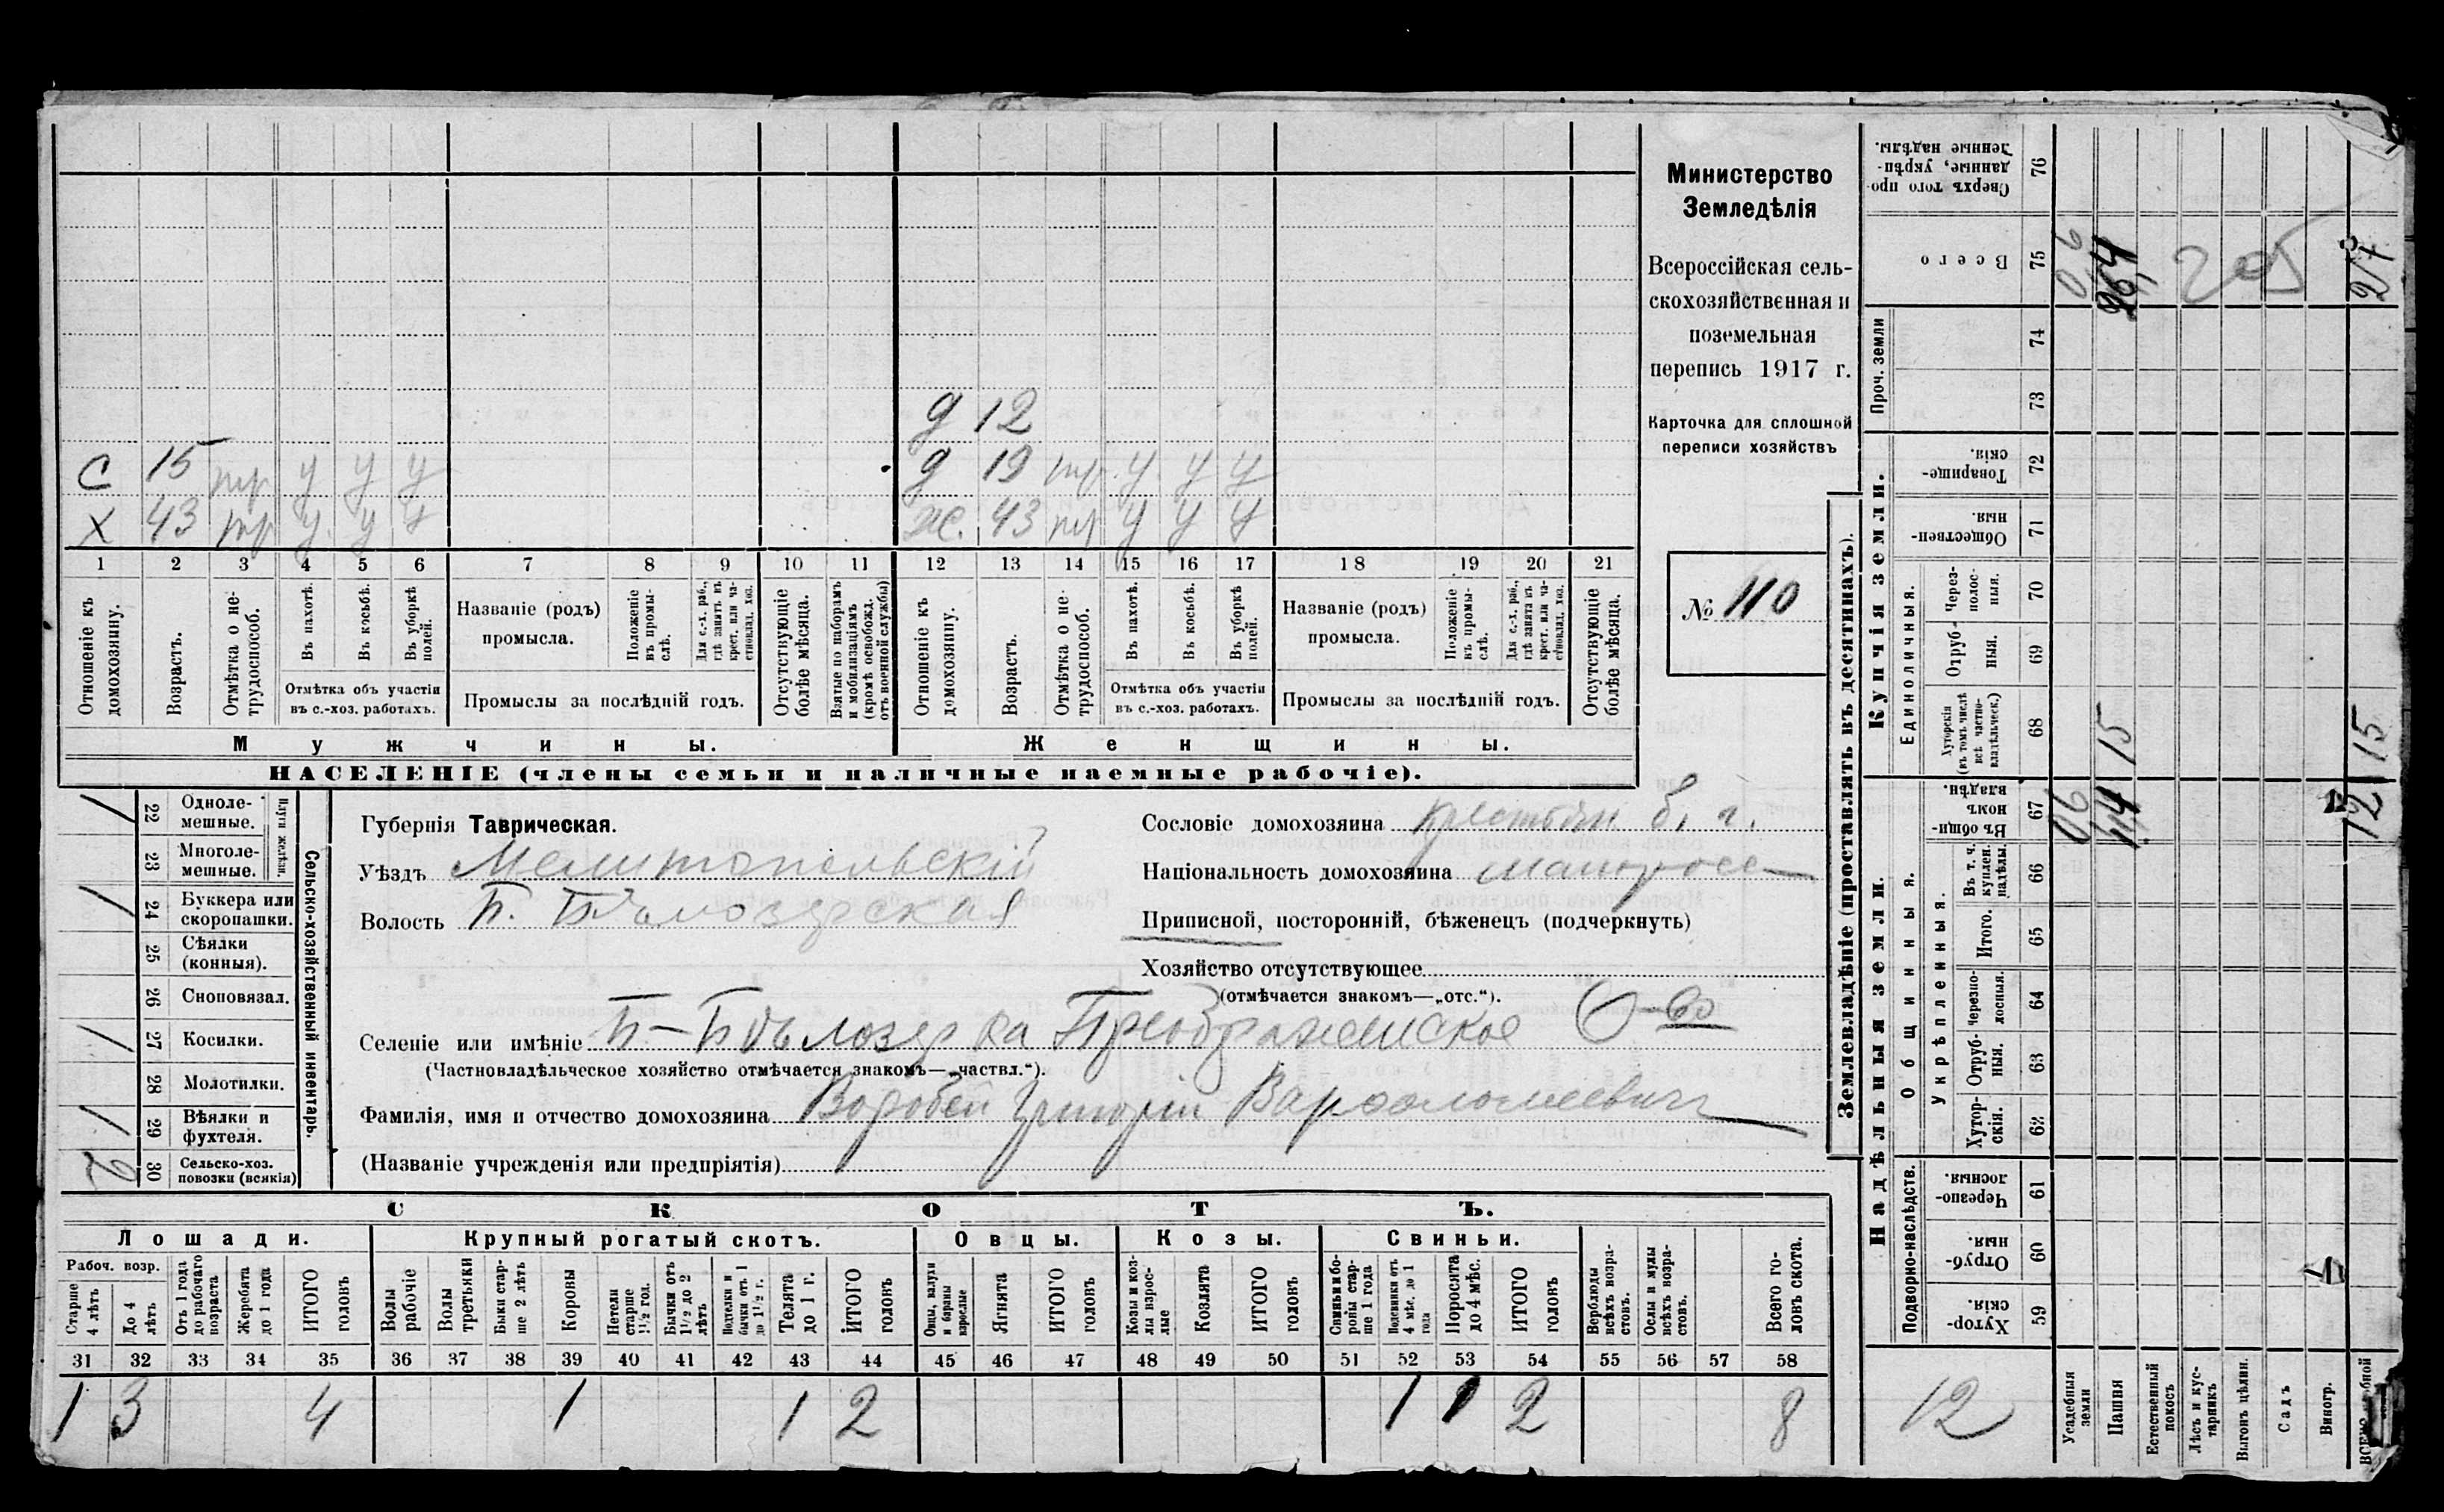 Министерство
Земледѣлія
Всероссійская сель-
скохозяйственная и
поземельная
перепись 1917 г.
Карточка для сплошной
переписи хозяйствъ
№ 110
д 12
С 15 тр у у у
д 19 тр. у у у
Х 43 тр у. у у
ж. 43 тр у у у
1 2 3 4 5 6 7 8 9 10 11 12 13 14 15 16 17 18 19 20 21
Отношеніе къ домохозяину.
Возрастъ.
Отмѣтка о не-трудоспособ.
Въ пахотѣ.
Въ косьбѣ.
Въ уборкѣ полей.
Отмѣтка объ участіи
въ с.-хоз. работахъ.
Названіе (родъ)
промысла.
Положеніе въ промы-слѣ.
Для с.-х. раб., гдѣ занятъ въ крест. или ча-стновлад. хоз.
Промыслы за послѣдній годъ.
Отсутствующіе болѣе мѣсяца.
Взятые по наборамъ и мобилизаціямъ (кромѣ освобожд. отъ военной службы)
Отношеніе къ домохозяину.
Возрастъ.
Отмѣтка о не-трудоспособ.
Въ пахотѣ.
Въ косьбѣ.
Въ уборкѣ полей.
Отмѣтка объ участіи
въ с.-хоз. работахъ.
Названіе (родъ)
промысла.
Положеніе въ промы-слѣ.
Для с.-х. раб., гдѣ занята въ крест. или ча-стновлад. хоз.
Промыслы за послѣдній годъ.
Отсутствующіе болѣе мѣсяца.
Мужчины.
Женщины.
НАСЕЛЕНІЕ (члены семьи и наличные наемные рабочіе).
Сельско-хозяйственный инвентарь.
Плуги желѣзн.
1 22 Одноле-мешные.
23 Многоле-мешные.
1 24 Буккера или скоропашки.
25 Сѣялки (конныя).
26 Сноповязал.
1 27 Косилки.
28 Молотилки.
1 29 Вѣялки и фухтеля.
2 30 Сельско-хоз. повозки (всякія)
Губернія Таврическая.
Уѣздъ Мелитопольскій
Волость Б. Бѣлозерская
Сословіе домохозяина крестьян б. г.
Національность домохозяина малоросс
Приписной, посторонній, бѣженецъ (подчеркнуть)
Хозяйство отсутствующее
(отмѣчается знакомъ—„отс.“).
Селеніе или имѣніе Б-Бѣлозерка Преображенское О-во
(Частновладѣльческое хозяйство отмѣчается знакомъ—„частвл.“).
Фамилія, имя и отчество домохозяина Воробей Григорій Варфоломеевич
(Названіе учрежденія или предпріятія)
СКОТЪ.
Лошади.
Крупный рогатый скотъ.
Овцы.
Козы.
Свиньи.
Рабоч. возр.
Старше 4 лѣтъ
До 4 лѣтъ
Отъ 1 года до рабочаго возраста
Жеребята до 1 года
ИТОГО головъ
Волы рабочіе
Волы третьяки
Быки стар-ше 2 лѣтъ
Коровы
Нетели старше 1½ год.
Бычки отъ 1½ до 2 лѣтъ
Подтелки и бычки отъ 1 до 1½ г.
Телята до 1 г.
ИТОГО головъ
Овцы, валухи и бараны взрослые
Ягнята
ИТОГО головъ
Козы и коз-лы взрос-лые
Козлята
ИТОГО головъ
Свиньи и бо-ровы стар-ше 1 года
Подсвинки отъ 4 мѣс. до 1 года
Поросята до 4 мѣс.
ИТОГО головъ
Верблюды всѣхъ возра-стовъ.
Ослы и мулы всѣхъ возра-стовъ.
Всего го-ловъ скота.
31 32 33 34 35 36 37 38 39 40 41 42 43 44 45 46 47 48 49 50 51 52 53 54 55 56 57 58
1 3 4 1 1 2 1 1 2 8
Землевладѣніе (проставлять въ десятинахъ).
Надѣльныя земли.
Купчія земли.
Проч. земли
Подворно-наслѣдств.
Общинныя.
Укрѣпленныя.
Единоличныя.
Сверхъ того про-данные, укрѣп-ленные надѣлы. 76
Всего 75
74
73
Товарище-скія. 72
Обществен-ныя. 71
Через-полос-ныя. 70
Отруб-ныя. 69
Хуторскія (въ томъ числѣ всѣ частно-владѣльческ.) 68
Въ общин-номъ владѣн. 67
Въ т. ч. куплен. надѣлы. 66
Итого. 65
Черезпо-лосныя. 64
Отруб-ныя. 63
Хутор-скія. 62
Черезпо-лосныя 61
Отруб-ныя. 60
Хутор-скія. 59
06
264
205
27
15
15
06
12
12
Усадебныя земли
Пашня
Естественный покосъ
Лѣсъ и кус-тарникъ
Выгонъ цѣлин.
Садъ
Виногр.